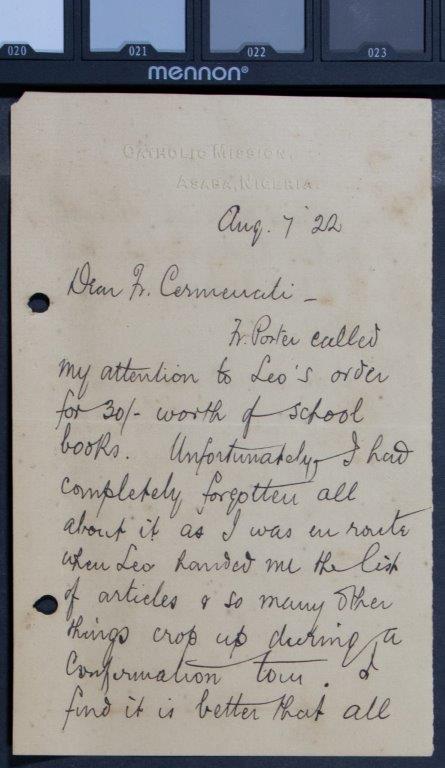 020 021 022 023
mennon®
CATHOLIC MISSION,
ASABA, NIGERIA.
Aug. 7 '22
Dear Fr. Cermenati –
Fr. Porter called
my attention to Leo's order
for 30/- worth of school
books. Unfortunately, I had
completely forgotten all
about it as I was en route
when Leo handed me the list
of articles & so many other
things crop up during a
Confirmation tour. I
find it is better that all